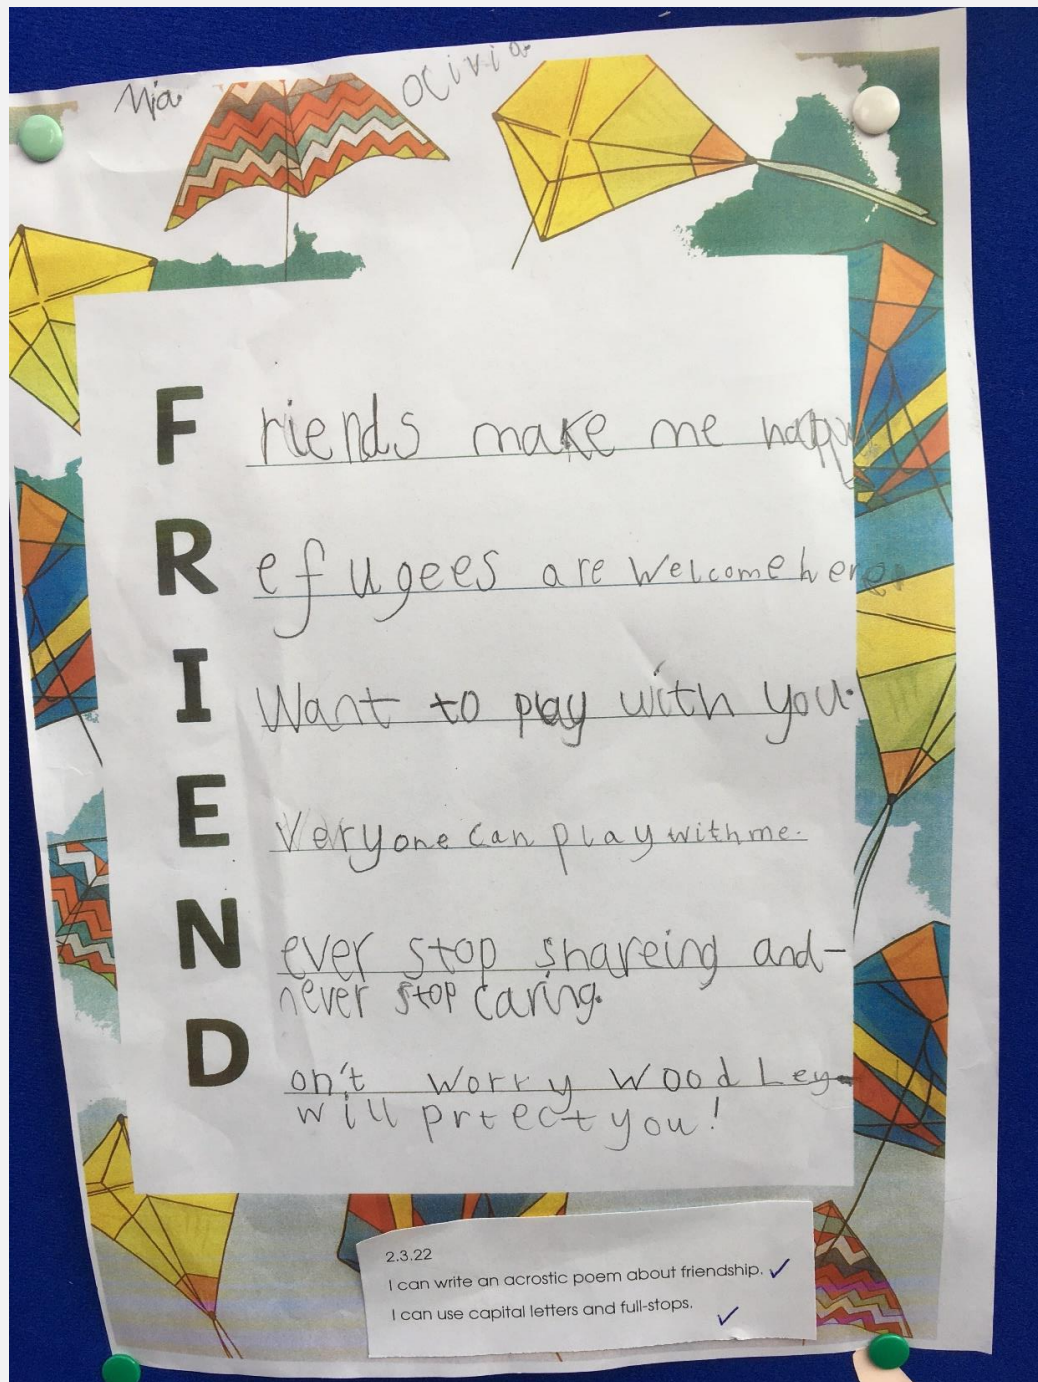 Mia Olivia
Friends make me happy
Refugees are welcome here.
I Want to play with you.
Everyone can play with me.
Never stop shareing and-
never stop caring.
Don't worry Woodley-
will prtect you!
2.3.22
I can write an acrostic poem about friendship. ✓
I can use capital letters and full-stops. ✓